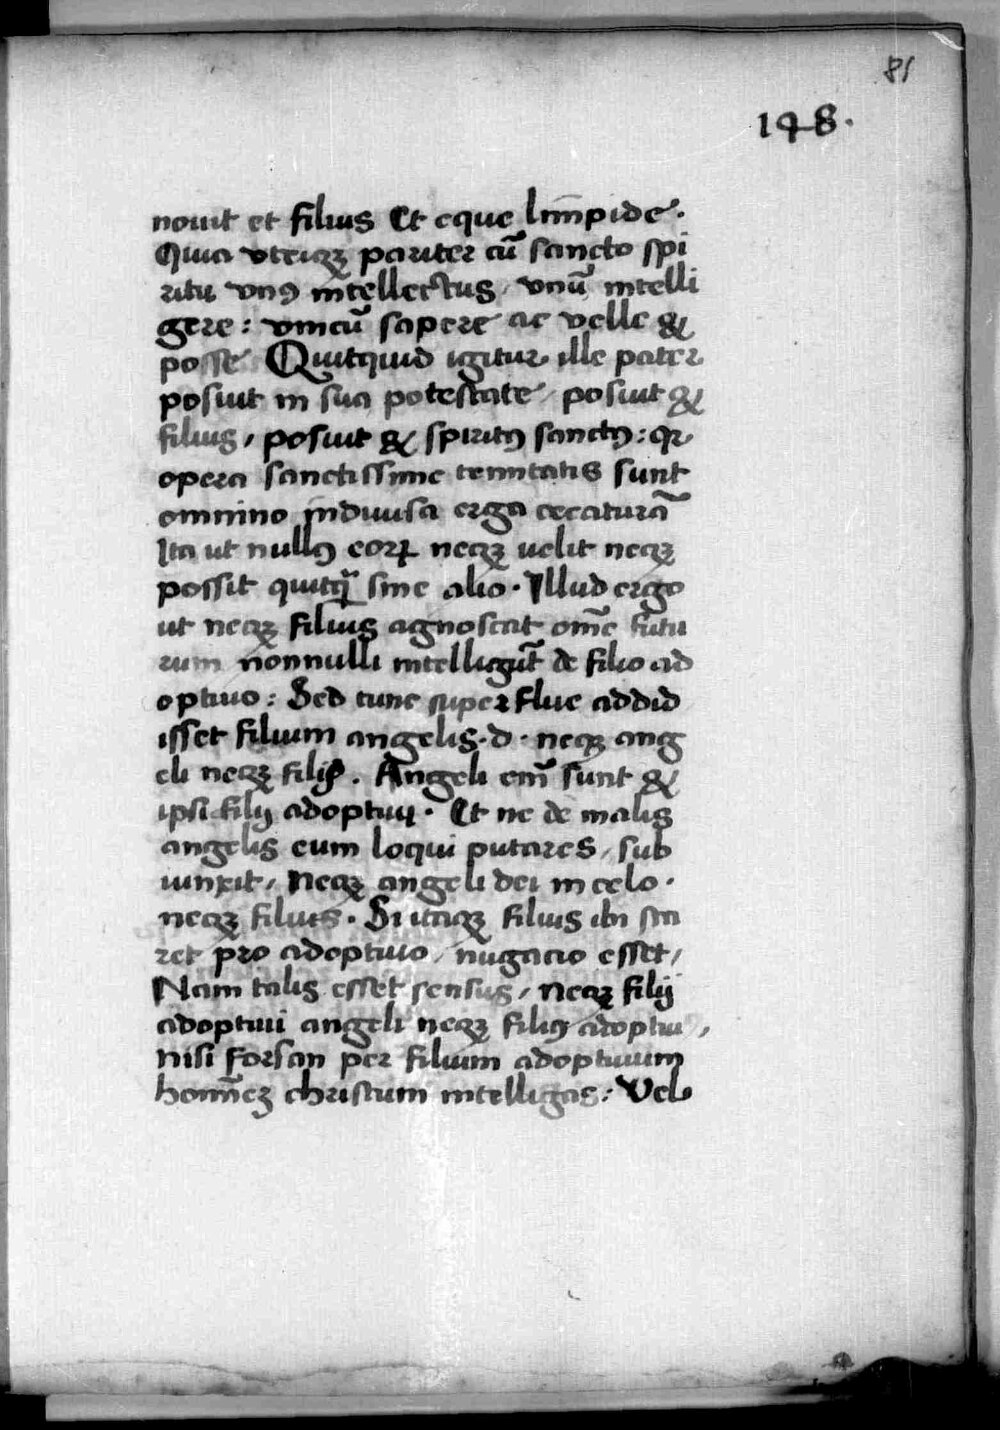 81
148.
nouit et filius Et eque limpide.
Quia vterqꝫ pariter cū sancto spi
ritu vnꝰ intellectus, vnū intelli
gere: vnicū sapere ac velle &
posse Quitquid igitur ille pater
posiuit in sua potestate, posiuit &
filius, posiuit & spiritꝰ sanctꝰ: qr
opera sanctissime trinitatis sunt
omnino indiuisa erga creaturā
Ita ut nullꝰ eoꝝ neqꝫ uelit neqꝫ
possit quitqͣ sine alio. Illud ergo
ut neqꝫ filius agnoscat om̄e futu
rum nonnulli intelligūt de filio ad
optiuo: Sed tunc superflue addid
isset filium angelis.d. neqꝫ ang
eli neqꝫ filiꝰ. Angeli em̄ sunt &
ipsi filij adoptiui. Et ne de malis
angelis eum loqui putares, sub
iunxit, Neqꝫ angeli dei in celo.
neqꝫ filius. Si itaqꝫ filius ibi sta
ret pro adoptiuo, nugacio esset,
Nam talis esset sensus, neqꝫ filij
adoptiui angeli neqꝫ filiꝰ adoptiu,
nisi forsan per filium adoptiuum
hom̄eꝫ christum intelligas: Vel